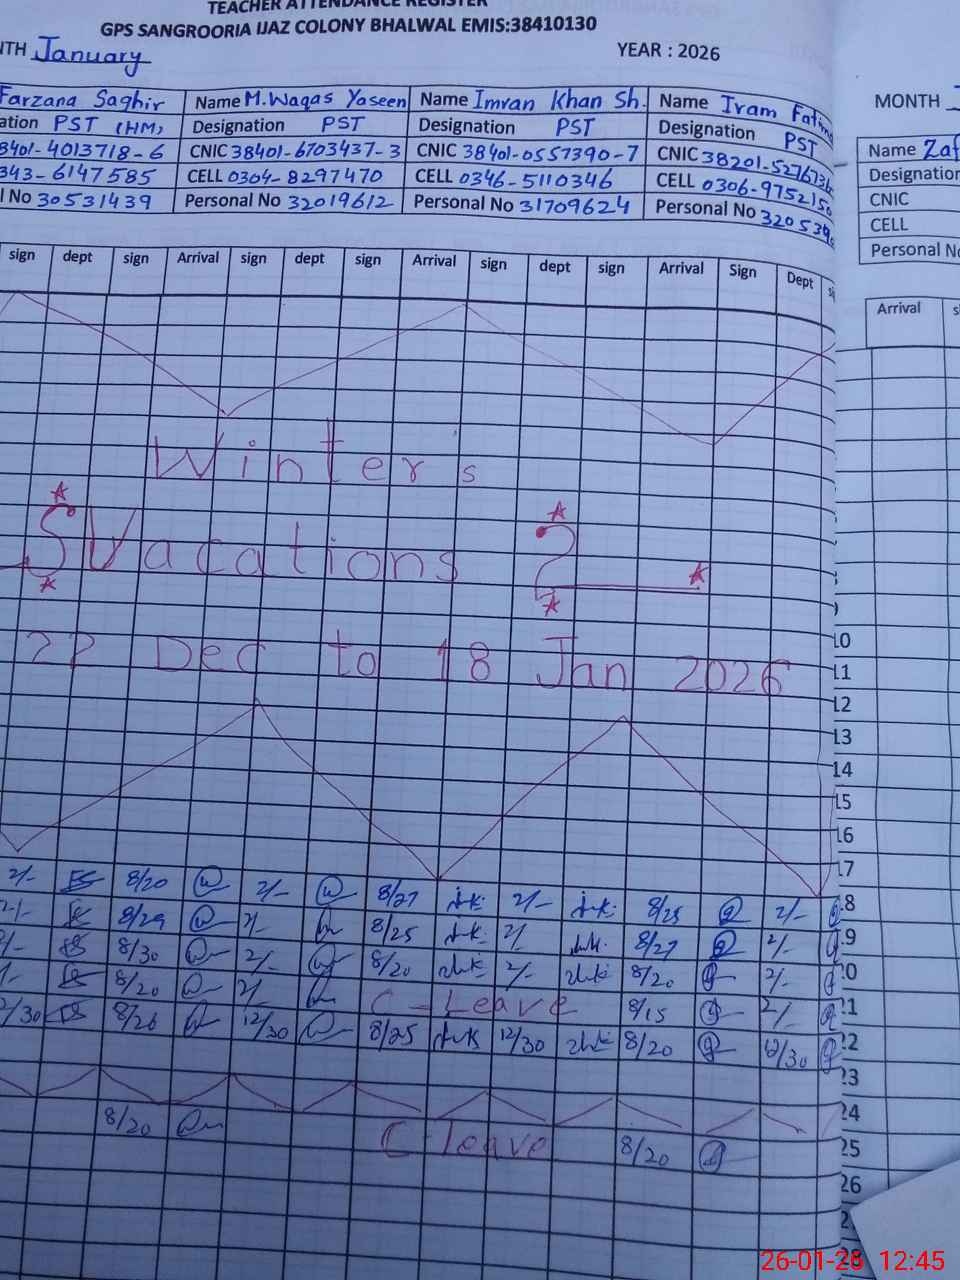 TEACHER ATTENDANCE REGISTER
GPS SANGROORIA IJAZ COLONY BHALWAL EMIS:38410130
NTH January YEAR : 2026
Farzana Saghir Name M.Waqas Yaseen Name Imran Khan Sh. Name Iram Fatima
ation PST (HM) Designation PST Designation PST Designation PST
38401-4013718-6 CNIC 38401-6703437-3 CNIC 38401-0557390-7 CNIC 38201-5276734
343-6147585 CELL 0304-8297470 CELL 0346-5110346 CELL 0306-9752150
l No 30531439 Personal No 32019612 Personal No 31709624 Personal No 32053
sign dept sign Arrival sign dept sign Arrival sign dept sign Arrival Sign Dept
Winter's
S Vacations
22 Dec to 18 Jan 2026
2/- FS 8/20 2/- 8/27 2/- 8/25 2/-
8/29 8/25 2/- 8/27 2/-
8/30 2/- 8/20 2/- 8/20 2/-
8/20 2/- C-Leave 8/15 2/-
/30 8/26 12/30 8/25 12/30 8/20 12/30
8/20 C-leave 8/20
MONTH
Name Zaf
Designation
CNIC
CELL
Personal No
Arrival
10
11
12
13
14
15
16
17
18
19
20
21
22
23
24
25
26
26-01-26 12:45